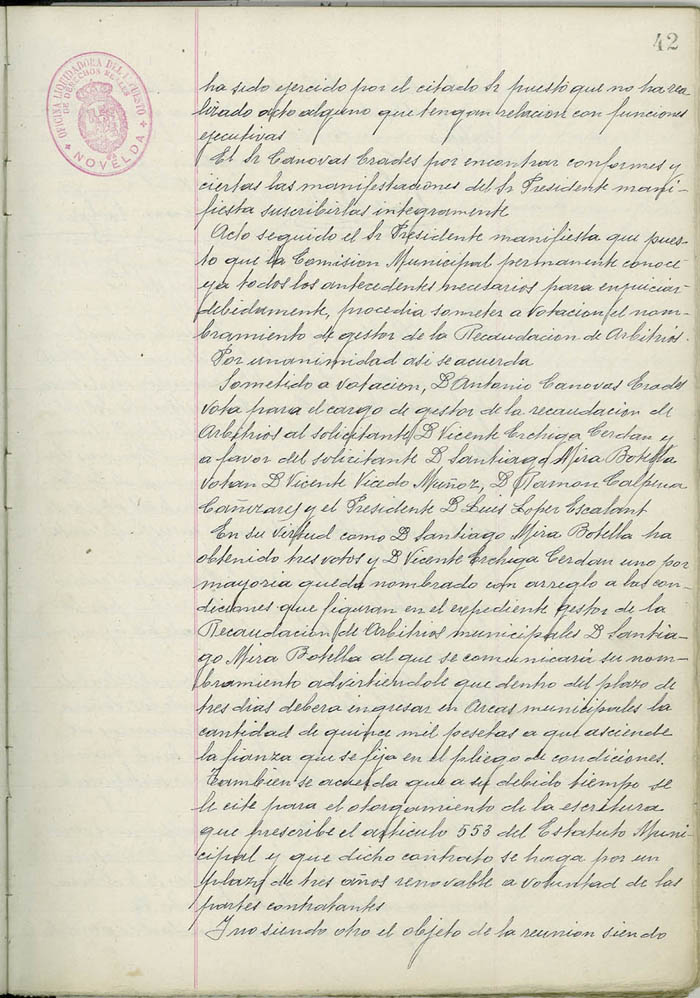 42
OFICINA LIQUIDADORA DEL IMPUESTO
DE DERECHOS REALES
NOVELDA
ha sido ejercido por el citado Sr puesto que no ha rea-
lizado acto alguno que tengan relacion con funciones
ejecutivas
El Sr Canovas Erades por encontrar conformes y
ciertas las manifestaciones del Sr Presidente mani-
fiesta suscribirlas integramente
Acto seguido el Sr Presidente manifiesta que pues-
to que la Comision Municipal permanente conoce
ya todos los antecedentes necesarios para enjuiciar
debidamente, procedia someter a votacion el nom-
bramiento de gestor de la Recaudacion de Arbitrios.
Por unanimidad asi se acuerda
Sometido a votacion, D Antonio Canovas Erades
vota para el cargo de gestor de la recaudacion de
Arbitrios al solicitante D Vicente Crchiga Cerdan y
a favor del solicitante D Santiago Mira Botella
votan D Vicente Vicedo Muñoz, D Ramon Calpena
Cañizares y el Presidente D Luis Lopez Escalant
En su virtud como D Santiago Mira Botella ha
obtenido tres votos y D Vicente Crchiga Cerdan uno por
mayoria queda nombrado con arreglo a las con-
diciones que figuran en el expediente gestor de la
Recaudacion de Arbitrios municipales D Santia-
go Mira Botella al que se comunicará su nom-
bramiento advirtiendole que dentro del plazo de
tres dias debera ingresar en Arcas municipales la
cantidad de quince mil pesetas a que asciende
la fianza que se fija en el pliego de condiciones.
Tambien se acuerda que a su debido tiempo se
le cite para el otorgamiento de la escritura
que prescribe el articulo 553 del Estatuto Muni-
cipal y que dicho contrato se haga por un
plazo de tres años renovable a voluntad de las
partes contratantes
Y no siendo otro el objeto de la reunion siendo